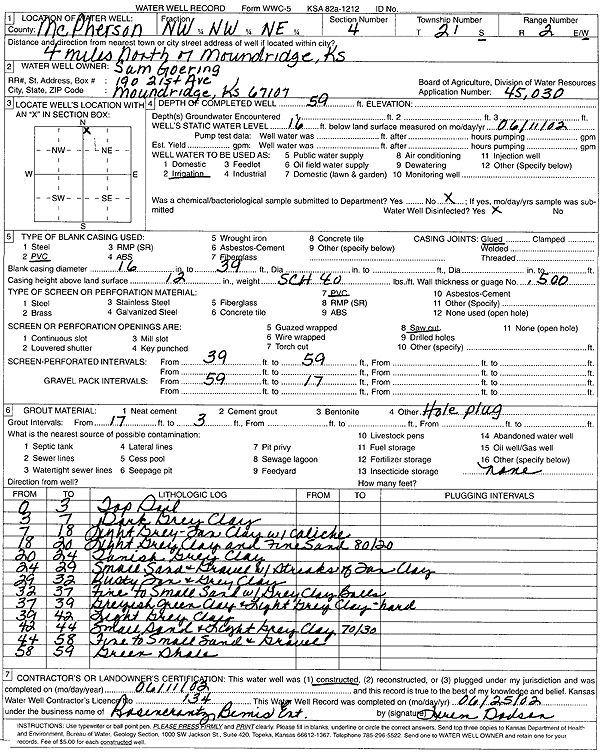 WATER WELL RECORD Form WWC-5 KSA 82a-1212 ID No.
1 LOCATION OF WATER WELL: Fraction Section Number Township Number Range Number
County: McPherson NW ¼ NW ¼ NE ¼ 4 T 21 S R 2 E/W
Distance and direction from nearest town or city street address of well if located within city?
4 miles North of Moundridge, Ks
2 WATER WELL OWNER: Sam Goering
RR#, St. Address, Box # : 190 21st Ave Board of Agriculture, Division of Water Resources
City, State, ZIP Code : Moundridge, KS 67107 Application Number: 45,030
3 LOCATE WELL'S LOCATION WITH AN "X" IN SECTION BOX:
N
X
NW NE
W E
SW SE
S
4 DEPTH OF COMPLETED WELL 59 ft. ELEVATION:
Depth(s) Groundwater Encountered 1 ft. 2 ft. 3 ft.
WELL'S STATIC WATER LEVEL 16 ft. below land surface measured on mo/day/yr 06/11/02
Pump test data: Well water was ft. after hours pumping gpm
Est. Yield gpm: Well water was ft. after hours pumping gpm
WELL WATER TO BE USED AS: 5 Public water supply 8 Air conditioning 11 Injection well
1 Domestic 3 Feedlot 6 Oil field water supply 9 Dewatering 12 Other (Specify below)
2 Irrigation 4 Industrial 7 Domestic (lawn & garden) 10 Monitoring well
Was a chemical/bacteriological sample submitted to Department? Yes No X ; If yes, mo/day/yrs sample was submitted
Water Well Disinfected? Yes X No
5 TYPE OF BLANK CASING USED: 5 Wrought iron 8 Concrete tile CASING JOINTS: Glued Clamped
1 Steel 3 RMP (SR) 6 Asbestos-Cement 9 Other (specify below) Welded
2 PVC 4 ABS 7 Fiberglass Threaded
Blank casing diameter 16 in. to 39 ft., Dia in. to ft., Dia in. to ft.
Casing height above land surface 12 in., weight SCH 40 lbs./ft. Wall thickness or guage No. .500
TYPE OF SCREEN OR PERFORATION MATERIAL: 7 PVC 10 Asbestos-Cement
1 Steel 3 Stainless Steel 5 Fiberglass 8 RMP (SR) 11 Other (Specify)
2 Brass 4 Galvanized Steel 6 Concrete tile 9 ABS 12 None used (open hole)
SCREEN OR PERFORATION OPENINGS ARE: 5 Guazed wrapped 8 Saw cut 11 None (open hole)
1 Continuous slot 3 Mill slot 6 Wire wrapped 9 Drilled holes
2 Louvered shutter 4 Key punched 7 Torch cut 10 Other (specify) ft.
SCREEN-PERFORATED INTERVALS: From 39 ft. to 59 ft., From ft. to ft.
From ft. to ft., From ft. to ft.
GRAVEL PACK INTERVALS: From 59 ft. to 17 ft., From ft. to ft.
From ft. to ft., From ft. to ft.
6 GROUT MATERIAL: 1 Neat cement 2 Cement grout 3 Bentonite 4 Other Hole plug
Grout Intervals: From 17 ft. to 3 ft., From ft. to ft., From ft. to ft.
What is the nearest source of possible contamination: 10 Livestock pens 14 Abandoned water well
1 Septic tank 4 Lateral lines 7 Pit privy 11 Fuel storage 15 Oil well/Gas well
2 Sewer lines 5 Cess pool 8 Sewage lagoon 12 Fertilizer storage 16 Other (specify below)
3 Watertight sewer lines 6 Seepage pit 9 Feedyard 13 Insecticide storage none
Direction from well? How many feet?
FROM TO LITHOLOGIC LOG FROM TO PLUGGING INTERVALS
0 3 Top Soil
3 7 Dark Grey Clay
7 18 Light Grey-Tan Clay w/ Caliche
18 20 Light Grey Clay and Fine Sand 80/20
20 24 Tanish Gray Clay
24 29 Small Sand & Gravel w/ Streaks of Tan Clay
29 32 Rusty Tan & Grey Clay
32 37 Fine to Small Sand w/ Grey Clay Balls
37 39 Greyish Green Clay & Light Grey Clay-hard
39 42 Light Grey Clay
42 44 Small Sand & Light Grey Clay 70/30
44 58 Fine to Small Sand & Gravel
58 59 Green Shale
7 CONTRACTOR'S OR LANDOWNER'S CERTIFICATION: This water well was (1) constructed, (2) reconstructed, or (3) plugged under my jurisdiction and was
completed on (mo/day/year) 06/11/02 and this record is true to the best of my knowledge and belief. Kansas
Water Well Contractor's Licence No 134 This Water Well Record was completed on (mo/day/yr) 06/25/02
under the business name of Rosencrantz Bemis Ent. by (signature) Owen Dodson
INSTRUCTIONS: Use typewriter or ball point pen. PLEASE PRESS FIRMLY and PRINT clearly. Please fill in blanks, underline or circle the correct answers. Send top three copies to Kansas Department of Health
and Environment, Bureau of Water, Geology Section, 1000 SW Jackson St., Suite 420, Topeka, Kansas 66612-1367. Telephone 785-296-5522. Send one to WATER WELL OWNER and retain one for your
records. Fee of $5.00 for each constructed well.